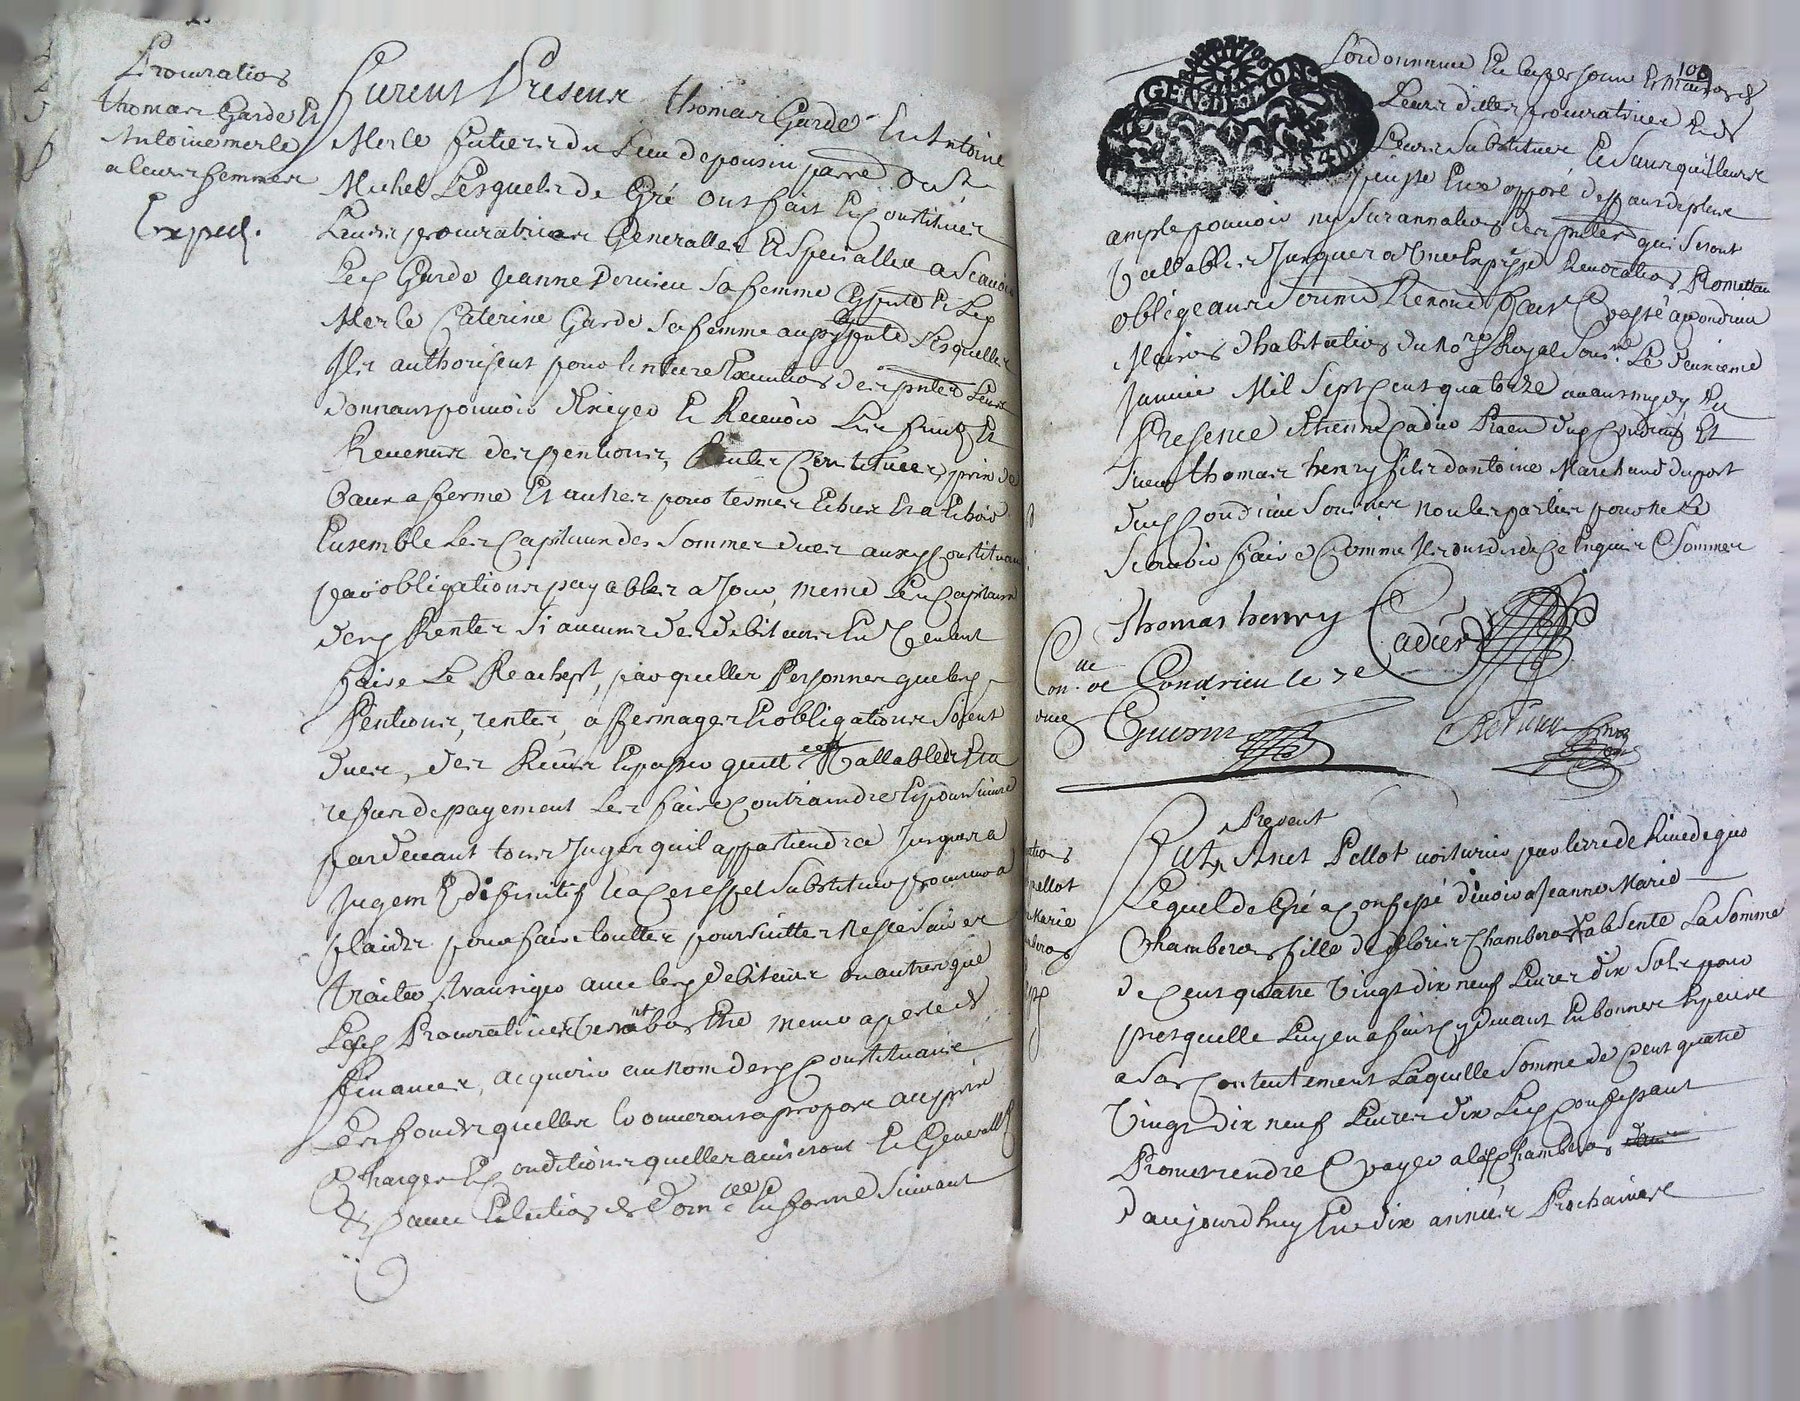 Procuration
thomas Garde Et
Antoine merle
a leurs femmes
Exped.
furent Presens thomas Garde Et Antoine
Merle futiers du Lieu de pousin parr[oisse] de St
Michel Lesquels de Gré ont fait Et Constitués
Leurs procuratrices Generalles Et Specialles a Scavoir
Led Garde Jeanne Dervieu Sa femme Et Led
Merle Caterine Garde Sa femme aussy Lesquelles
Ils authorisent pour lentiere Execution des Leurs
donnant pouvoir dExiger Et Recevoir Les fruits Et
Revenus des pentions, Rentes Constituées, prix de
Baux a ferme Et autres pour termes Echus Et a Echoir
Ensemble Les Capitaux des Sommes dues auxd Constituans
par obligations payables a Jour, meme Les Capitaux
desd Rentes Si aucuns des debiteurs En Veulent
faire Le Reachept, par quelles Personnes que lesd
Pentions, rentes, affermages Et obligations Soient
dues, des Reçus Et passer quitt ces Vallables Et a
refus de payement Les faire Contraindre Et poursuivre
pardevant tous Juges quil appartiendra Jusques a
Jugem t difinitif Et a Cet effet Substituer procureur a
plaids pour faire touttes poursuittes Necessaires
traiter, transiger avec lesd debiteurs ou autres que
Lesd Procuratrices Verront bon Etre meme a perte de
finances, acquerir au nom desd Constituans
des fonds quelles trouveront a propos aux prix
Charges Et Conditions quelles aviseront Et Generallt
&c avec Election de Dom ce En forme Suivant
100
GEN DE LYON
Lordonnance En leurs personne Et Maisons de
Leurs dittes procuratrices Et de
Leurs Substitués Et Sans quil leurs
puisse Etre opposé deffaut de plus
ample pouvoir ny Surannation des qui Seront
Vallables Jusques a Une Expresse Revocation Promettant
obligeant Serment Renonc fait Et passé a Condrieu
Maison dhabitation du No re Royal Sous né Le deuxieme
Janvier Mil Sept Cent quatorze avant midy En
Presence dEtienne Cadier Prat dud Condrieu Et
Sieur thomas henry fils dantoine Marchand du port
dud Condrieu Sousnés non les parties pour ne le
Scavoir faire Comme Ils ont dit de Ce Enquis Et Sommés
Thomas henry Cadier
Con. lle de Condrieu le 7e
Guerin
Present
Fut Anet Pellot voiturier par terre de Rivedegier
Lequel de Gré a Confessé devoir a Jeanne Marie
Chamberon fille de Chamberon absente La Somme
de Cent quatre Vingt dix neuf Livres dix Sols pour
prest quelle Luy en a fait Cy devant En bonnes Especes
a Son Contentement Laquelle Somme de Cent quatre
Vingt dix neuf Livres dix Led Confessant
Promet rendre Et payer a lad Chamberon
daujourdhuy En dix années Prochaines